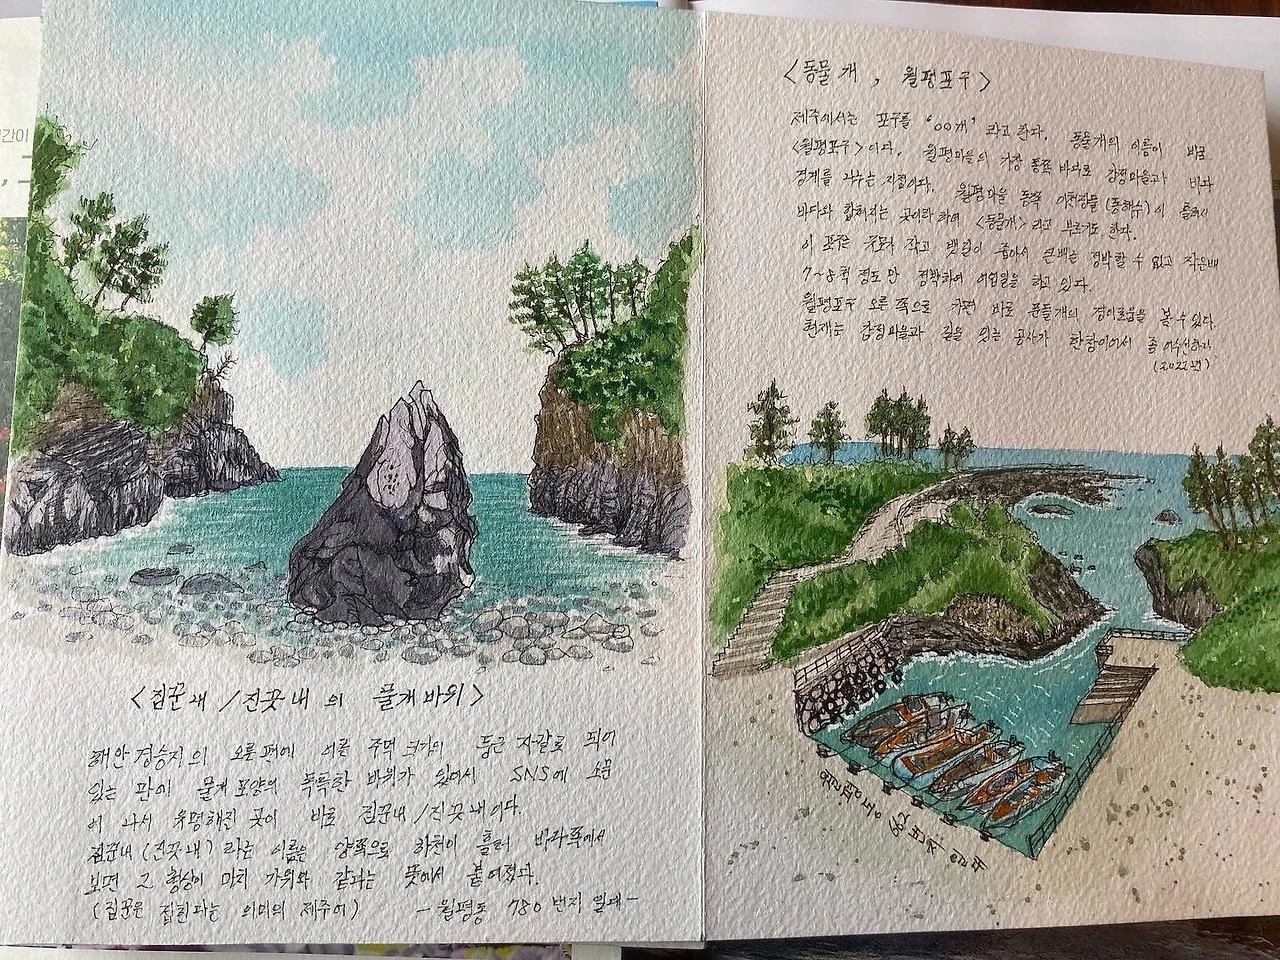 간이
<집꾼내 / 진곳내 의 물개바위>
해안 경승지의 오른편에 어른 주먹 크기의 둥근 자갈로 되어
있는 판이 물개 모양의 독특한 바위가 있어서 SNS에 소문
이 나서 유명해진 곳이 바로 집꾼내 / 진곳내이다.
집꾼내 (진곳내) 라는 이름은 양쪽으로 하천이 흘러 바다쪽에서
보면 그 형상이 마치 가위와 같다는 뜻에서 붙여졌다.
(집꾼은 접힌다는 의미의 제주어) - 월평동 780 번지 일대 -
<동물개, 월평포구>
제주에서는 포구를 'OO개' 라고 한다. 동물개의 이름이 바로
<월평포구> 이다. 월평마을의 가장 동쪽 바다로 강정마을과 바다
경계를 나누는 지점이다. 월평마을 동쪽 (동해수) 이 흘러서
바다와 합쳐지는 곳이라 하여 <동물개> 라고 부르기도 한다.
이 포구는 규모가 작고 뱃길이 좁아서 큰배는 정박할 수 없고 작은배
7~8척 정도만 정박하여 어업일을 하고 있다.
월평포구 오른쪽으로 가면 바로 경이로움을 볼 수 있다.
현재는 강정마을과 길을 잇는 공사가 한창이어서 좀 어수선하다
(2022년)
월평동 번지 일대